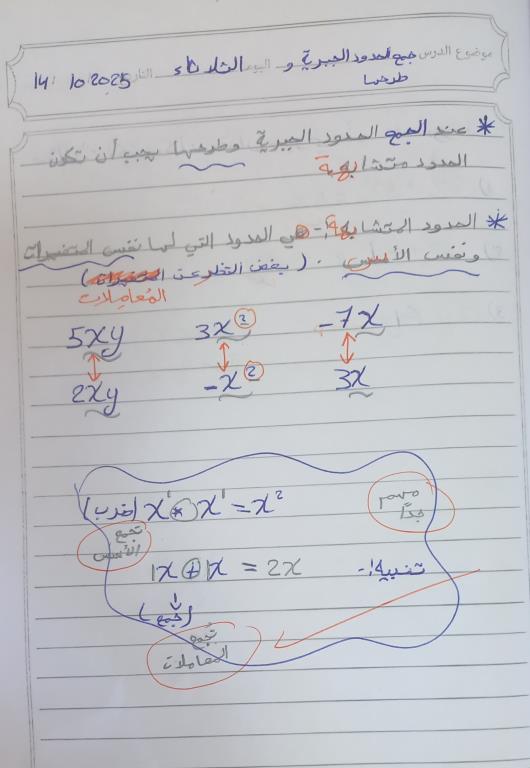 موضوع الدرس جمع الحدود الجبرية و طرحها اليوم الثلاثاء التاريخ 14. 10. 2025
* عند الجمع الحدود الجبرية وطرحها يجب أن تكون
الحدود متشابهة
* الحدود المتشابهة :- هي الحدود التي لها نفس المتغيرات
ونفس الأسس . (بغض النظر عن المعاملات)
5xy 3x² -7x
2xy -x² 3x
مهم جدًا
(ضرب) x¹ * x¹ = x²
تجمع الأسس
تنبيه :- 1x + 1x = 2x
(جمع)
تُجمع
المعاملات